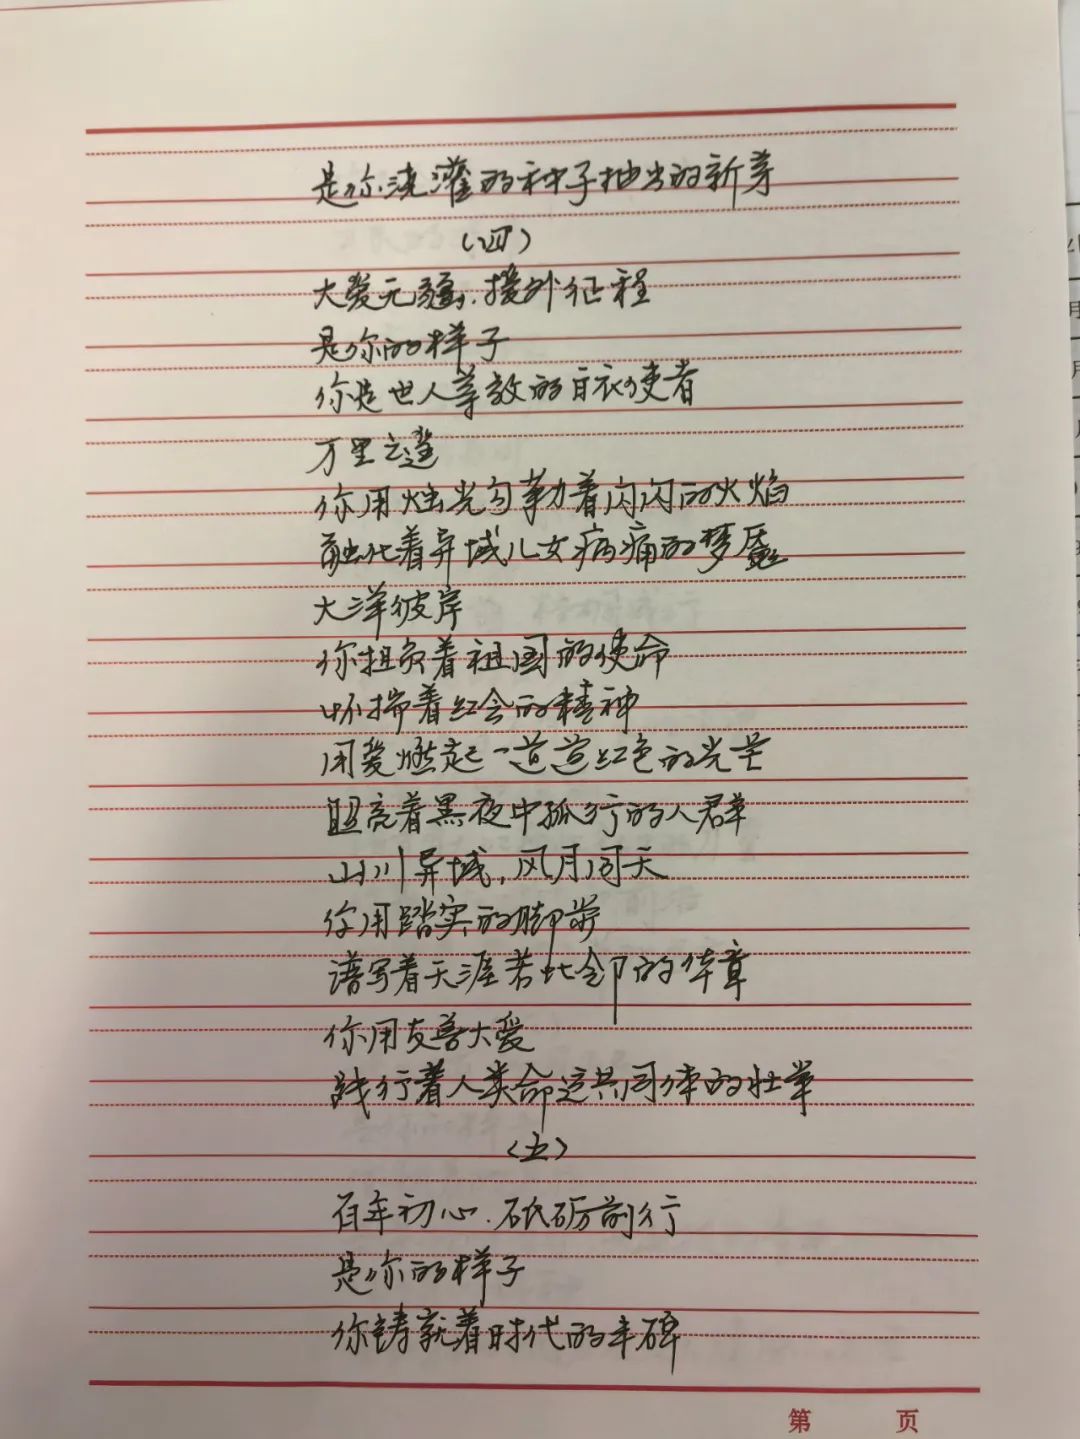 是你浇灌的种子抽出的新芽
（四）
大爱无疆，援外征程
是你的样子
你是世人尊敬的白衣使者
万里之遥
你用烛光勾勒着闪闪的火焰
融化着异域儿女病痛的梦魇
大洋彼岸
你担负着祖国的使命
怀揣着红会的精神
用爱燃起一道道红色的光芒
照亮着黑夜中孤行的人群
山川异域，风月同天
你用踏实的脚步
谱写着天涯若比邻的华章
你用友善大爱
践行着人类命运共同体的壮举
（五）
百年初心，砥砺前行
是你的样子
你铸就着时代的丰碑
第 页